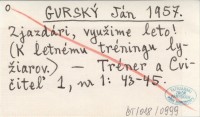 GURSKÝ Ján 1957.
Zjazdári, využime leto!
(K letnému tréningu ly-
žiarov.) — Tréner a Cvi-
čiteľ 1, nr 1: 43-45.